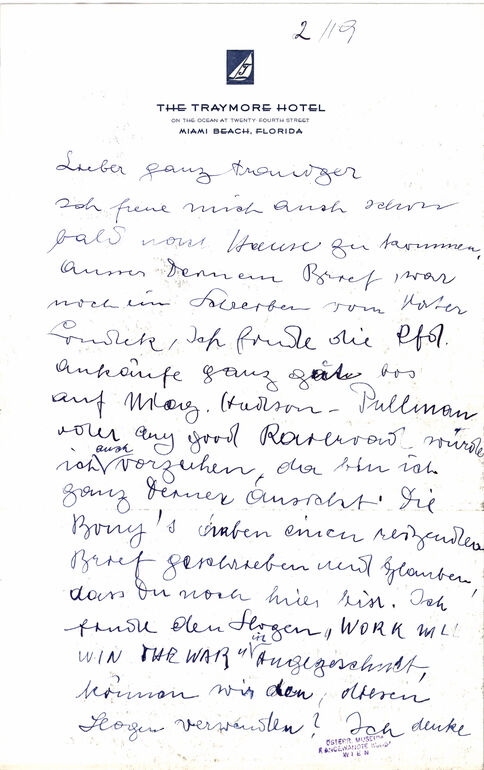 2/19
THE TRAYMORE HOTEL
ON THE OCEAN AT TWENTY FOURTH STREET
MIAMI BEACH, FLORIDA
Lieber ganz trauriger
Ich freue mich auch schon
bald nach Hause zu kommen,
Ausser Deinem Brief, war
noch ein Schreiben vom Vater
ich finde die Pfd.
Ankäufe ganz gut bos
auf Mag. Hudson - Pullman
oder any good Railroad würde
ich auch vorziehen, da bin ich
ganz Deiner Ansicht. Die
Bony's haben einen reizenden
Brief geschrieben und glauben,
dass Du noch hier bist. Ich
finde den Slogan "WORK WILL
WIN THE WAR" angezeichnet,
können wir den, diesen
Slogan verwenden? Ich denke
ÖSTERR. MUSEUM
F. ANGEWANDTE KUNST
WIEN